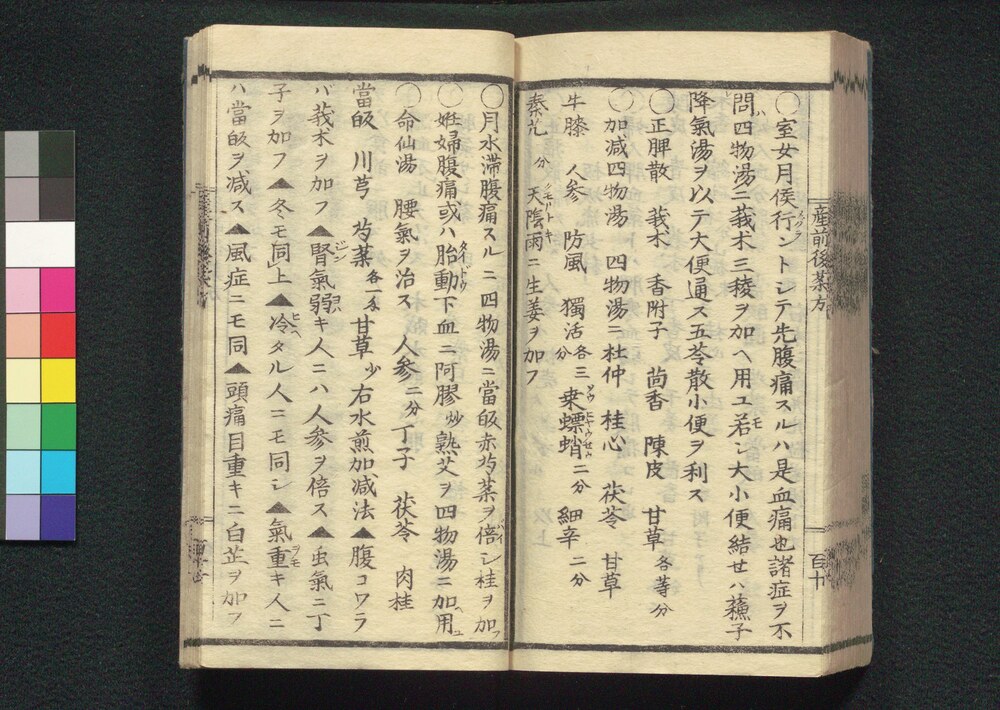 産前後薬方
百十
〇室女月侯行ントシテ先腹痛スルハ是血痛也諸症ヲ不
問四物湯ニ莪朮三稜ヲ加ヘ用ユ若シ大小便結セハ蘓子
降氣湯ヲ以テ大便通ス五苓散小便ヲ利ス
〇正脾散 莪朮 香附子 茴香 陳皮 甘草各等分
〇加减四物湯 四物湯ニ杜仲 桂心 茯苓 甘草
牛膝 人参 防風 獨活各三分 桑螵蛸二分 細辛二分
秦艽分 天陰雨ニ生姜ヲ加フ
〇月水滞腹痛スルニ四物湯ニ當皈赤芍薬ヲ倍シ桂ヲ加フ
〇妊婦腹痛或ハ胎動下血ニ阿膠炒熟艾ヲ四物湯ニ加ヘ用ユ
〇命仙湯 腰氣ヲ治ス 人参二分 丁子 茯苓 肉桂
當皈 川芎 芍薬各一匁 甘草少 右水煎加减法▲腹コワラ
バ莪朮ヲ加フ▲腎氣弱キ人ニハ人参ヲ倍ス▲虫氣ニ丁
子ヲ加フ▲冬モ同上▲冷タル人ニモ同シ▲氣重キ人ニ
ハ當皈ヲ减ス▲風症ニモ同▲頭痛目重キニ白芷ヲ加フ